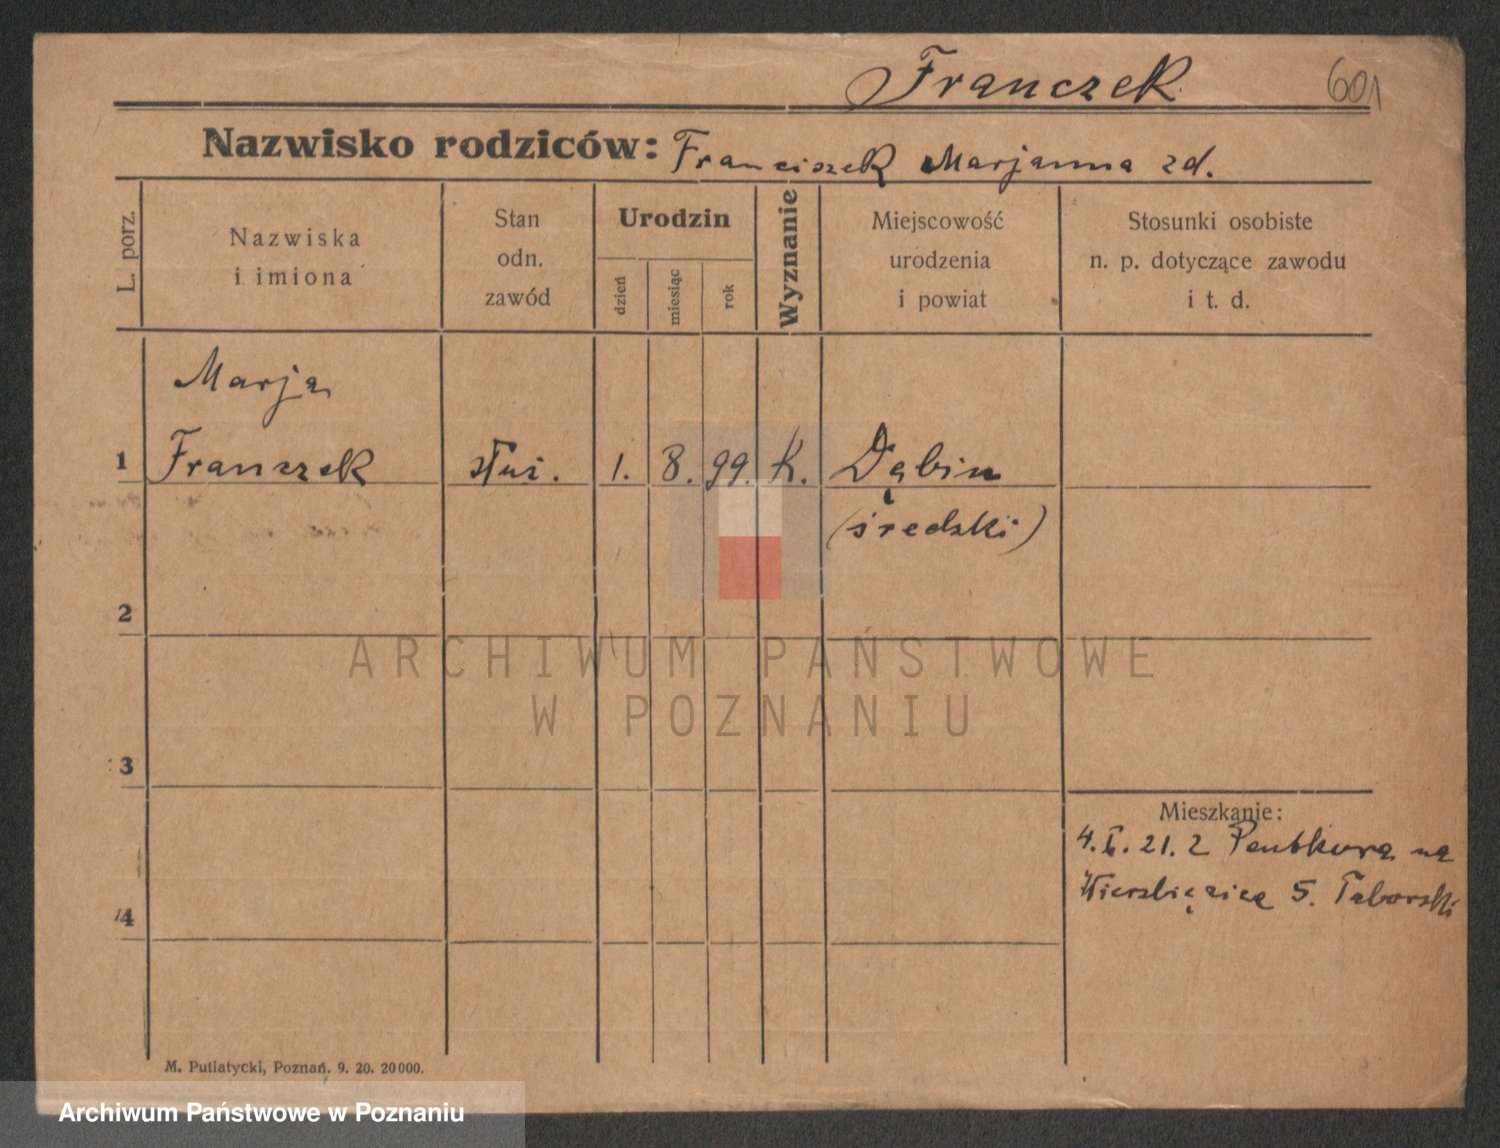 Franczek 601
Nazwisko rodziców: Franciszek Marjanna zd.
L. porz.
Nazwiska
i imiona
Stan
odn.
zawód
Urodzin
dzień
miesiąc
rok
Wyznanie
Miejscowość
urodzenia
i powiat
Stosunki osobiste
n. p. dotyczące zawodu
i t. d.
Marja
1 Franczek służ. 1. 8. 99. K. Dąbin
(średzki)
2
ARCHIWUM PAŃSTWOWE
W POZNANIU
3
Mieszkanie:
4. 21. z na
Wierzbięcice 5. Taborski
4
M. Putiatycki, Poznań. 9. 20. 20000.
Archiwum Państwowe w Poznaniu